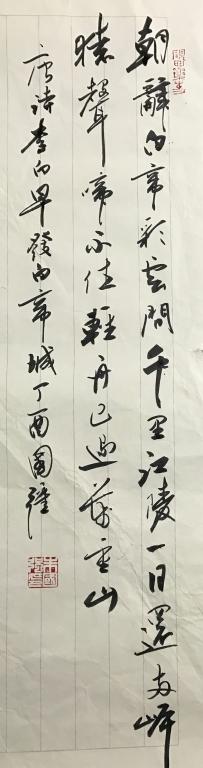 朝辭白帝彩雲間千里江陵一日還兩岸
猿聲啼不住輕舟已過萬重山
唐詩李白早發白帝城丁酉國強